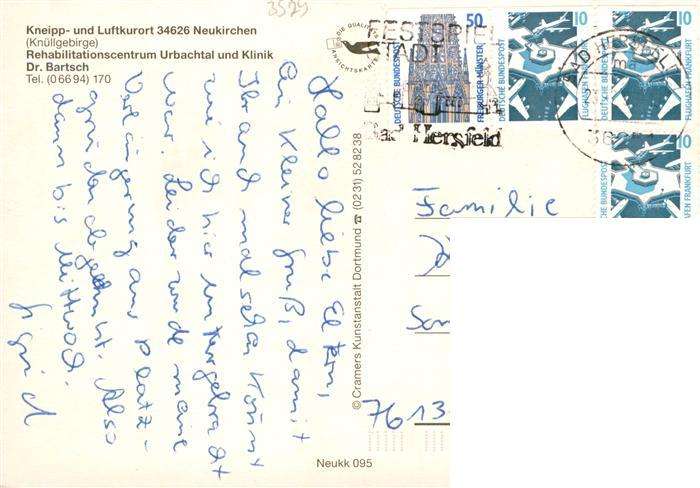 3529
Kneipp- und Luftkurort 34626 Neukirchen
(Knüllgebirge)
Rehabilitationscentrum Urbachtal und Klinik
Dr. Bartsch
Tel. (0 66 94) 170
Hallo liebe Eltern,
ein kleiner Gruß, damit
Ihr auch mal sehen könnt
wie ich hier untergebracht
war. Leider wurde meine
Verlängerung aus Platz-
gründen abgelehnt. Also
dann bis Mittwoch.
DIE QUALITÄTS
ANSICHTSKARTE
© Cramers Kunstanstalt Dortmund ☎ (0231) 528238
Neukk 095
FESTSPIEL
STADT
Bad Hersfeld
BAD HERSFELD
50
DEUTSCHE BUNDESPOST
FREIBURGER MÜNSTER
10
DEUTSCHE BUNDESPOST
FLUGHAFEN FRANKFURT
10
DEUTSCHE BUNDESPOST
FLUGHAFEN FRANKFURT
10
DEUTSCHE BUNDESPOST
HAFEN FRANKFURT
Familie
7613